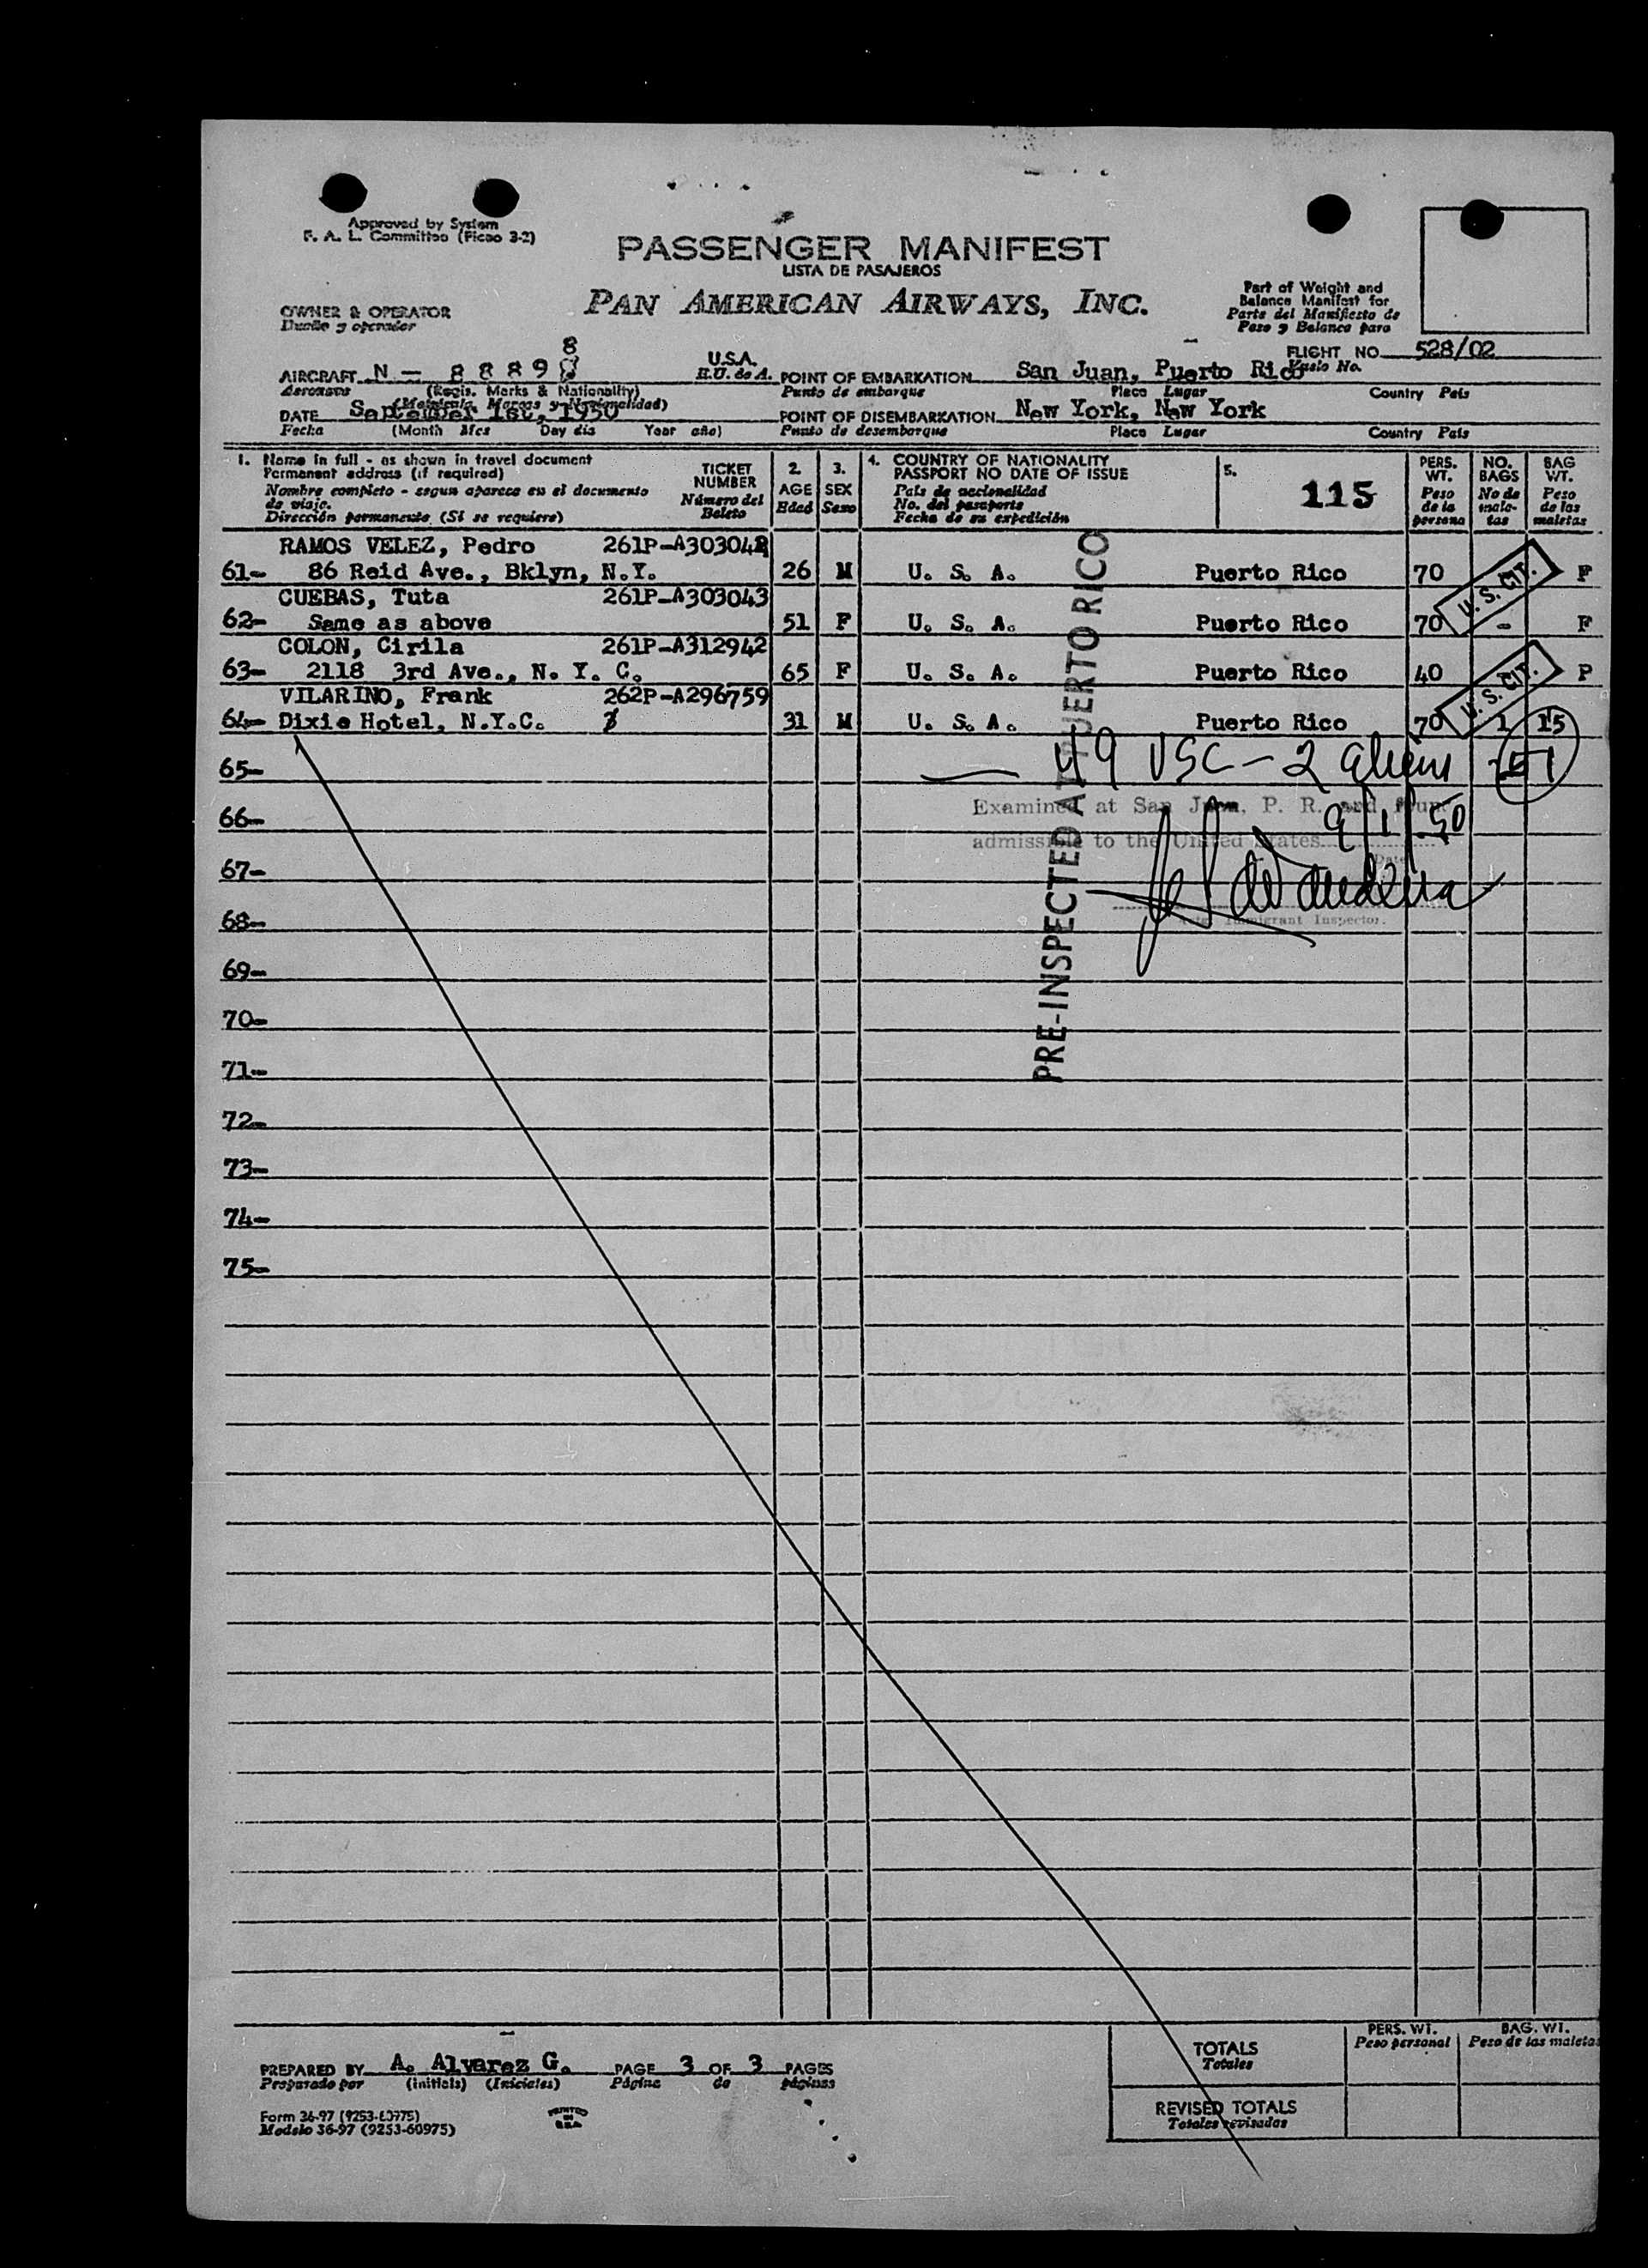 Approved by System
F. A. L. Committee (Ficao 3-2)
PASSENGER MANIFEST
LISTA DE PASAJEROS
PAN AMERICAN AIRWAYS, INC.
OWNER & OPERATOR
Dueño y operador
Part of Weight and
Balance Manifest for
Parte del Manifiesto de
Peso y Balance para
FLIGHT NO. 528/02
Vuelo No.
8
AIRCRAFT N - 8889 U.S.A.
Aeronave (Regis. Marks & Nationality) E.U. de A.
(Matricula, Marcas y Nacionalidad)
POINT OF EMBARKATION San Juan, Puerto Rico
Punto de embarque Place Lugar Country País
DATE September 1st, 1950
Fecha (Month Mes Day dia Year año)
POINT OF DISEMBARKATION New York, New York
Punto de desembarque Place Lugar Country País
1. Name in full - as shown in travel document
Permanent address (if required)
Nombre completo - segun aparece en el documento
de viaje.
Dirección permanente (Si se requiere)
TICKET
NUMBER
Número del
Boleto
2.
AGE
Edad
3.
SEX
Sexo
4. COUNTRY OF NATIONALITY
PASSPORT NO DATE OF ISSUE
País de nacionalidad
No. del pasaporte
Fecha de su expedición
5.
115
PERS.
WT.
Peso
de la
persona
NO.
BAGS
No de
male-
tas
BAG
WT.
Peso
de las
maletas
RAMOS VELEZ, Pedro 261P-A303042
61- 86 Reid Ave., Bklyn, N.Y. 26 M U. S. A. Puerto Rico 70 F
CUEBAS, Tuta 261P-A303043
62- Same as above 51 F U. S. A. Puerto Rico 70 - F
COLON, Cirila 261P-A312942
63- 2118 3rd Ave., N. Y. C. 65 F U. S. A. Puerto Rico 40 P
VILARINO, Frank 262P-A296759
64- Dixie Hotel, N.Y.C. 31 M U. S. A. Puerto Rico 70 1 15
U. S. CIT.
U. S. CIT.
PRE-INSPECTED AT PUERTO RICO
49 USC - 2 aliens - 51
65-
Examined at San Juan, P. R. and found
66- 9/1/50
admissible to the United States
Date
67-
Immigrant Inspector.
68-
69-
70-
71-
72-
73-
74-
75-
TOTALS
Totales
PERS. WT.
Peso personal
BAG. WT.
Peso de las maletas
REVISED TOTALS
Totales revisados
PREPARED BY A. Alvarez G. PAGE 3 OF 3 PAGES
Preparado por (initials) (Iniciales) Página de páginas
Form 36-97 (9253-60975)
Modelo 36-97 (9253-60975)
PRINTED
IN
U.S.A.